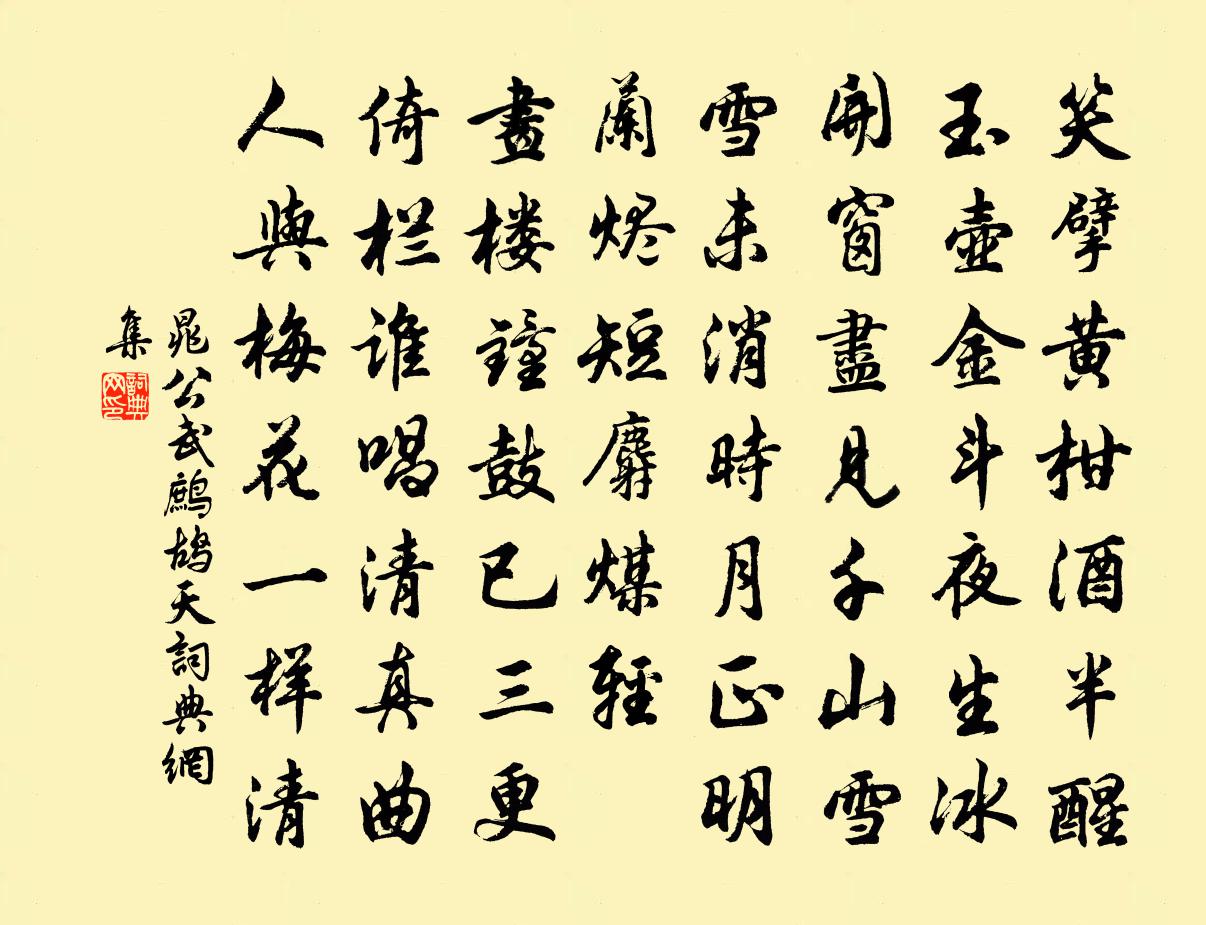 笑擘黄柑酒半醒
玉壺金斗夜生冰
開窗盡見千山雪
雪未消時月正明
蘭烬短麝煤輕
畫楼鐘鼓已三更
倚栏谁唱清真曲
人與梅花一样清
晁公武鷓鴣天詞典網
集
詞典网印